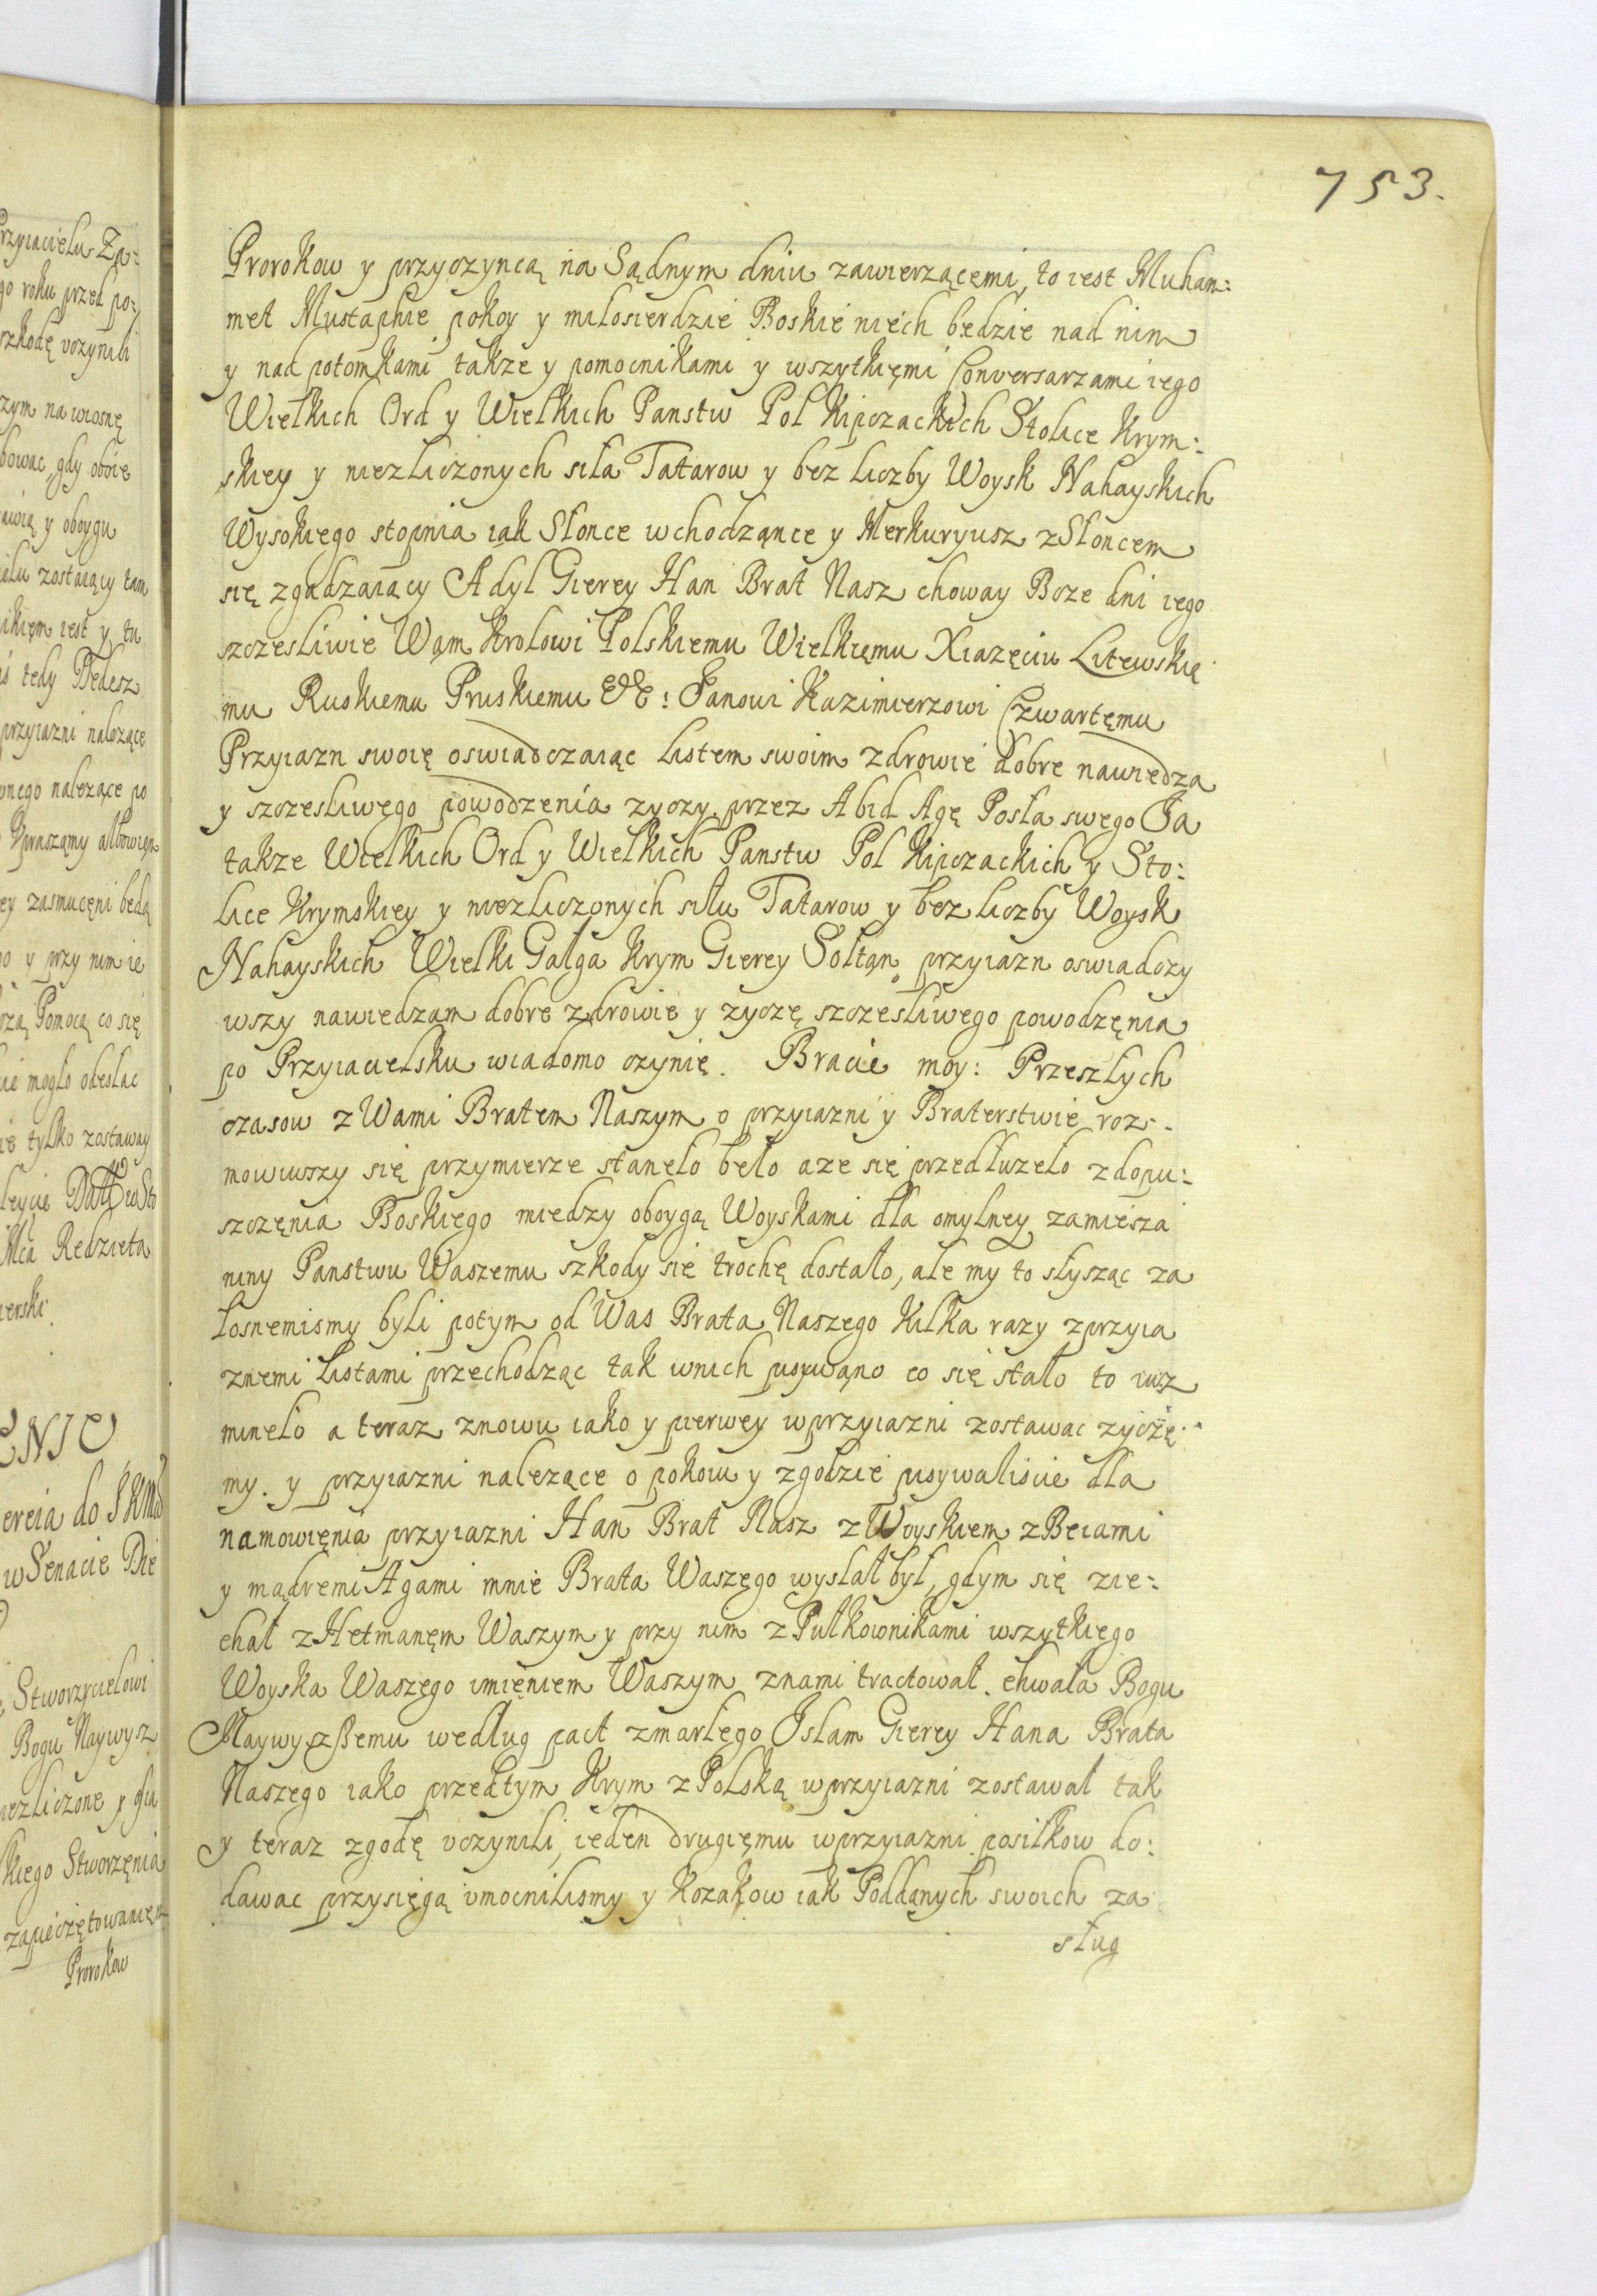 753.
Prorokow y przyczyncą na Sądnym dniu zawierzącemi, to iest Muham:
met Mustaphie pokoy y milosierdzie Boskie niech będzie nad nim
y nad potomkami takze y pomocnikami y wszytkięmi Conversarzami iego
Wielkich Ord y Wielkich Panstw Pol Kipczackich Stolice Krym:
skiey y niezliczonych siła Tatarow y bez liczby Woysk Nahayskich
Wysokiego stopnia iak Słonce wchodzące y Merkuryusz z Słoncem
się zgadzaiący Adyl Gierey Han Brat Nasz choway Boze dni iego
szczesliwie Wąm Krolowi Polskiemu Wielkięmu Xiazęciu Litewskie
mu Ruskiemu Pruskiemu &c: Janowi Kazimierzowi Czwartęmu
Przyiazn swoię oswiadczaiąc listem swoim zdrowie dobre nawiedza
y szczesliwego powodzenia zyczy przez Abid Agę Posła swego Ja
takze Wielkich Ord y Wielkich Panstw Pol Kipczackich y Sto:
lice Krymskiey y niezliczonych siłu Tatarow y bez liczby Woysk
Nahayskich Wielki Gałga Krym Gierey Sołtąn przyiazn oswiadczy
wszy nawiedzam dobre zdrowie y zyczę szczesliwego powodzęnia
po Przyiacielsku wiadomo czynię. Bracie moy: Przeszłych
czasow z Wami Bratem Naszym o przyiazni y Braterstwie roz-
mowiwszy się przymierze staneło beło aze się przedłuzeło z dopu:
szczęnia Boskiego miedzy oboygą Woyskami dla omylney zamiesza
niny Panstwu Waszemu szkody się trochę dostało, ale my to słysząc za
łosnemismy byli potym od Was Brata Naszego Kilka razy z przyia
znemi listami przechodząc tak wnich pisywąno co się stało to iuz
mineło a teraz znowu iako y pierwey w przyiazni zostawac zyczę
my. y przyiazni nalezące o pokoiu y zgodzie pisywaliscie dla
namowięnia przyiazni Han Brat Nasz z Woyskiem z Beiami
y mądremi Agami mnie Brata Waszęgo wysłał był, gdym się zie:
chał z Hetmanęm Waszym y przy nim z Pułkownikami wszytkiego
Woyska Waszego imięniem Waszym znami tractował. chwała Bogu
Naywyzszemu według pact zmarłego Islam Gierey Hana Brata
Naszego iako przedtym Krym z Polską w przyiazni zostawał tak
y teraz zgodę vczynili, ieden drugięmu w przyiazni posiłkow do:
dawac przysięgą vmocnilismy y Kozakow iak Poddanych swoich za
sług